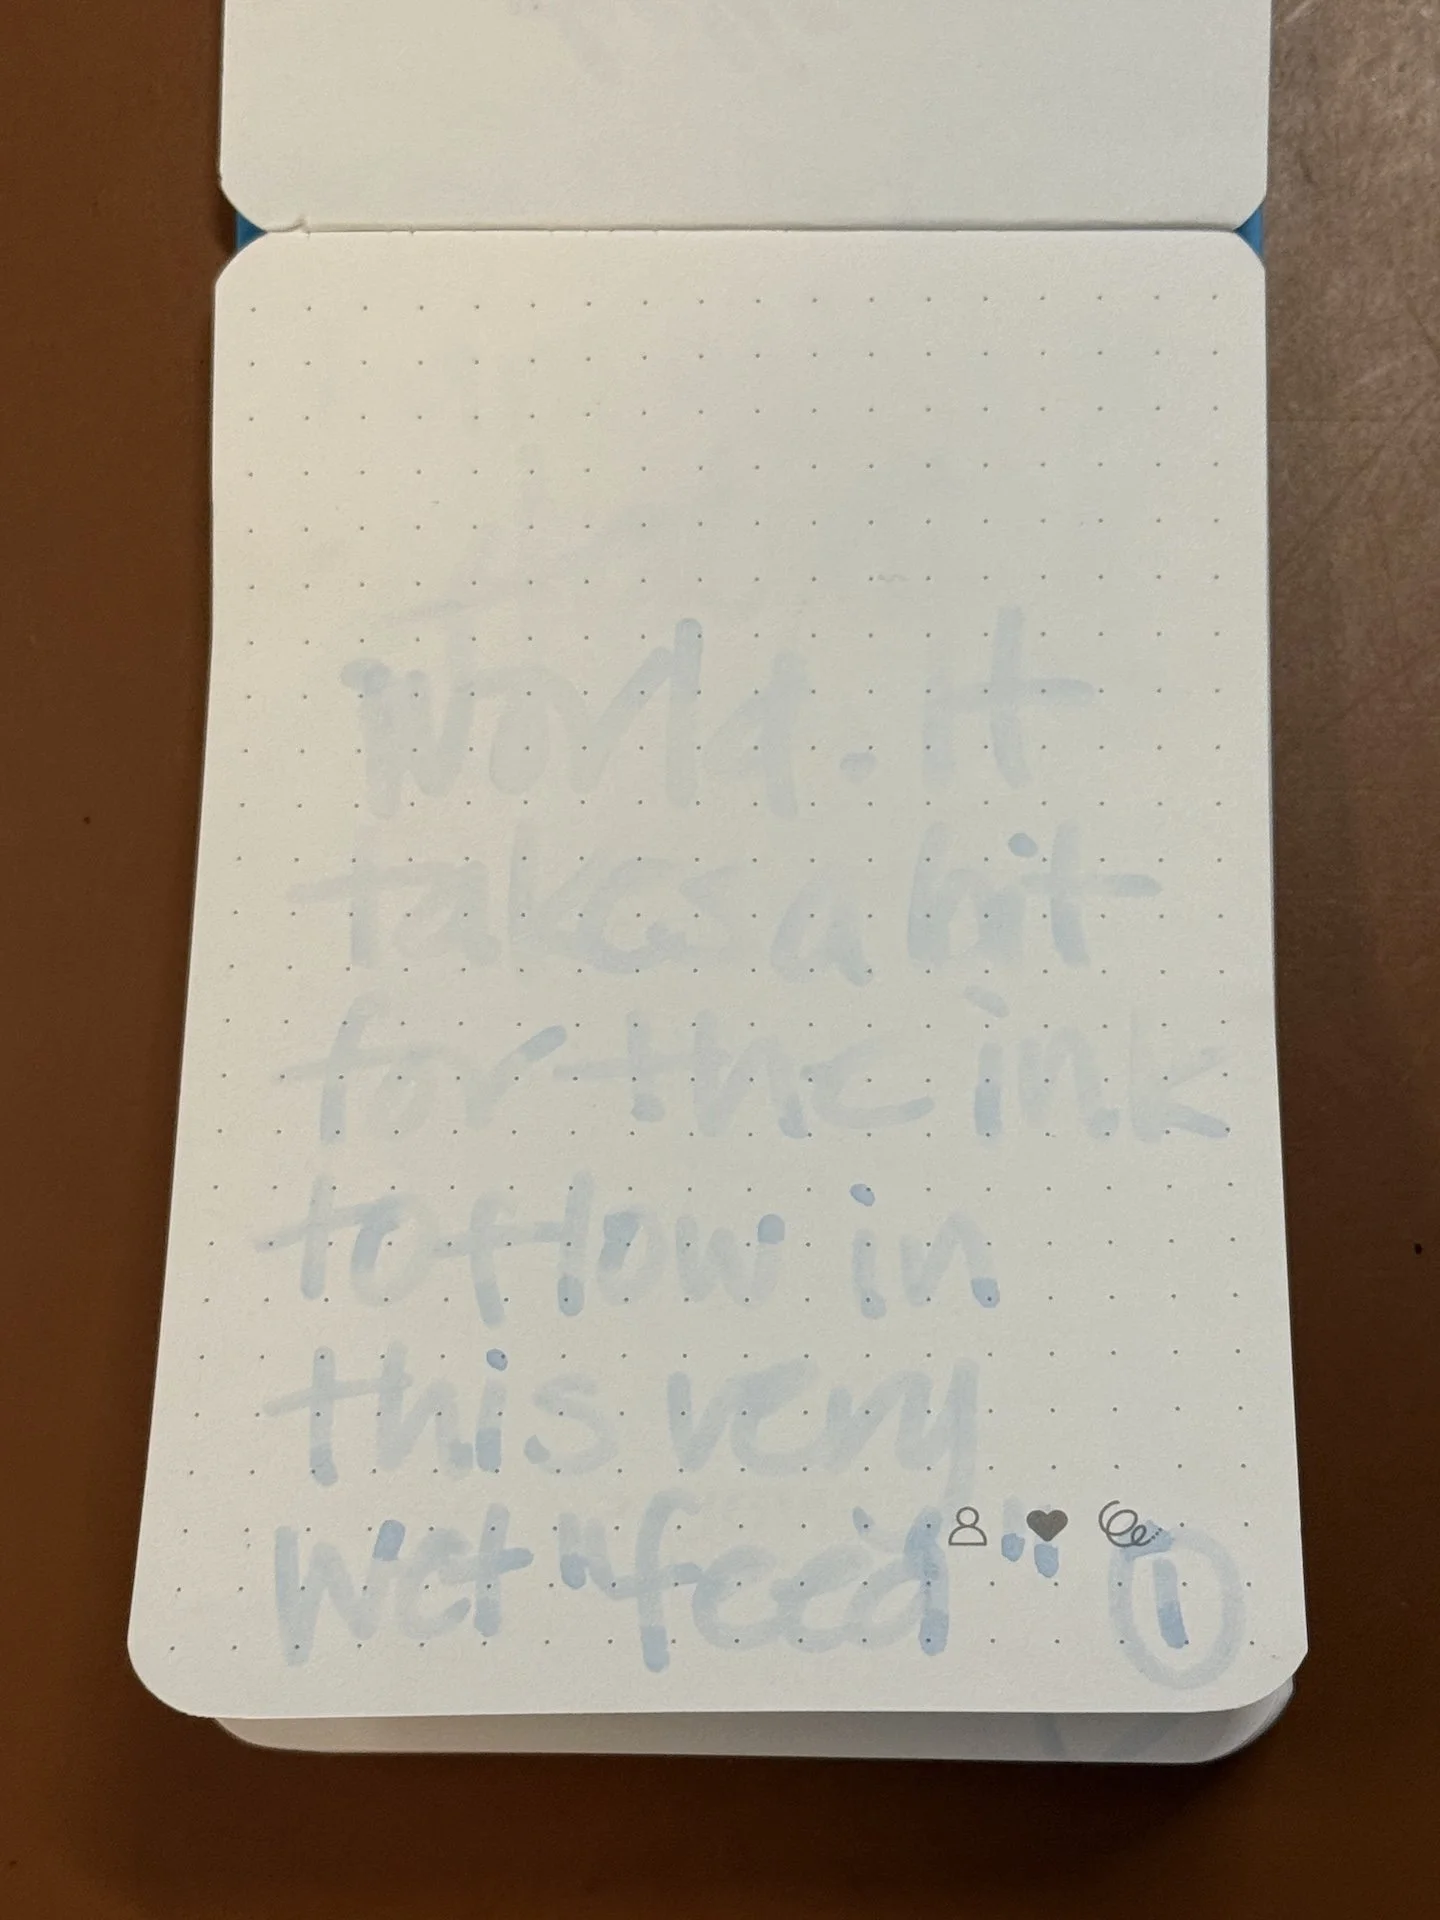 World. It
takes a bit
for the ink
to flow in
this very
wet "feed" ①